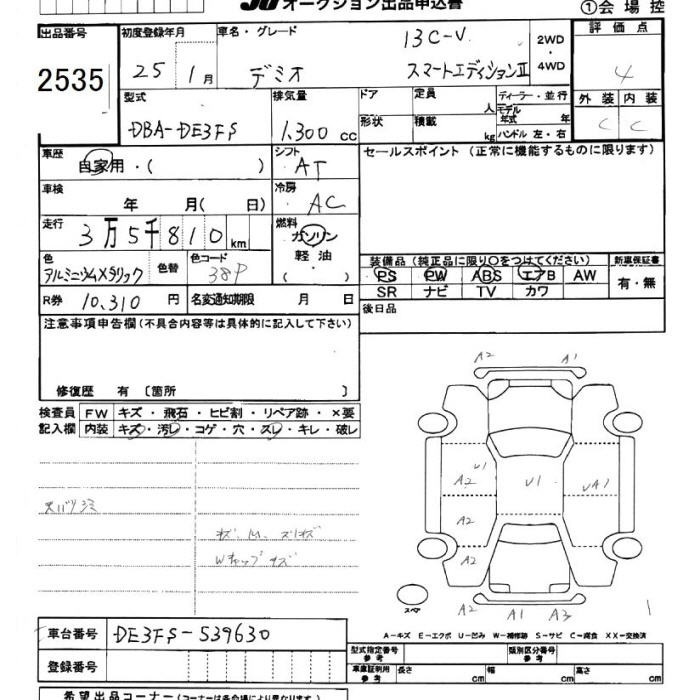 JU オークション出品申込書
①会場控
出品番号 初度登録年月 車名・グレード 13C-V 2WD・4WD 評価点
2535 25年 1月 デミオ スマートエディションⅡ 4
型式 排気量 ドア 定員 人 ディーラー・並行 外装 内装
DBA-DE3FS 1,300 cc 形状 積載 kg モデル年式 年 ハンドル 左・右 C C
車歴 自家用・( ) シフト AT セールスポイント (正常に機能するものに限ります)
車検 年 月( 日) 冷房 AC
走行 3万5千810km 燃料 ガソリン・軽油・( )
色 アルミニウムメタリック 色替 色コード 38P
装備品 (純正品に限り○をつけてください) 新車保証書
PS PW ABS エアB AW 有・無
SR ナビ TV カワ
R券 10,310 円 名変通知期限 月 日 後日品
注意事項申告欄(不具合内容等は具体的に記入して下さい)
修復歴 有 〔箇所 〕
検査員 FW キズ・飛石・ヒビ割・リペア跡・×要
記入欄 内装 キズ・汚レ・コゲ・穴・スレ・キレ・破レ
A2 A1
A2 U1 U1 UA1
A2
A2 A2
スペア
A2 A1 A3
A-キズ E-エクボ U-凹み W-補修跡 S-サビ C-腐食 XX-交換済
車台番号 DE3FS-539630
登録番号
型式指定番号 参考 類別区分番号 参考
車庫証明用 参考 長さ cm 幅 cm 高さ cm
希望出品コーナー